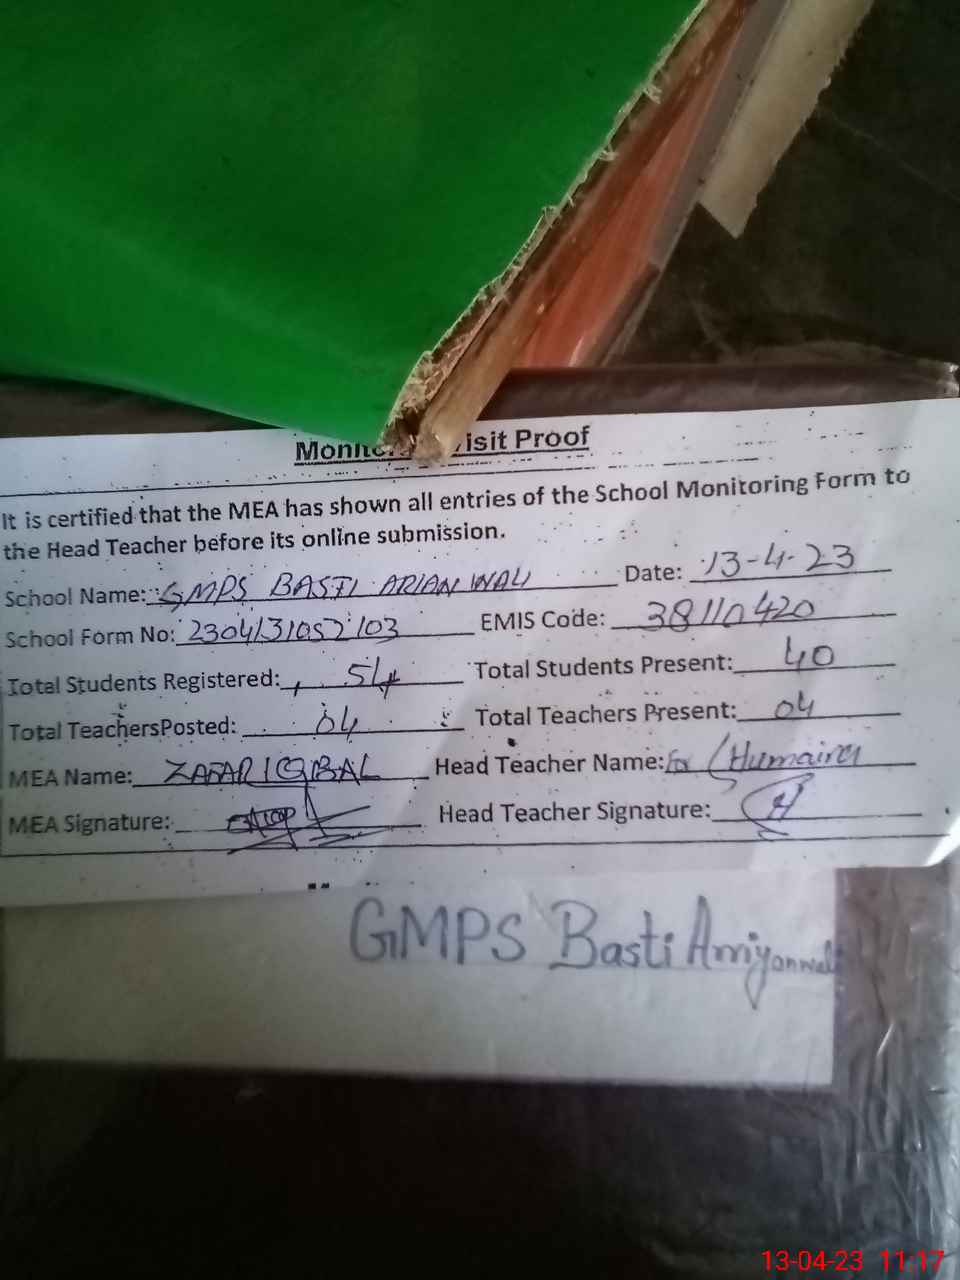 Monito isit Proof
It is certified that the MEA has shown all entries of the School Monitoring Form to
the Head Teacher before its online submission.
School Name: GMPS BASTI ARIAN WALI Date: 13-4-23
School Form No: 2304131052103 EMIS Code: 38110420
Total Students Registered: 54 Total Students Present: 40
Total TeachersPosted: 04 Total Teachers Present: 04
MEA Name: ZAFAR IQBAL Head Teacher Name: for (Humaira
MEA Signature: Head Teacher Signature: H
GMPS Basti Arriyanwali
13-04-23 11:17